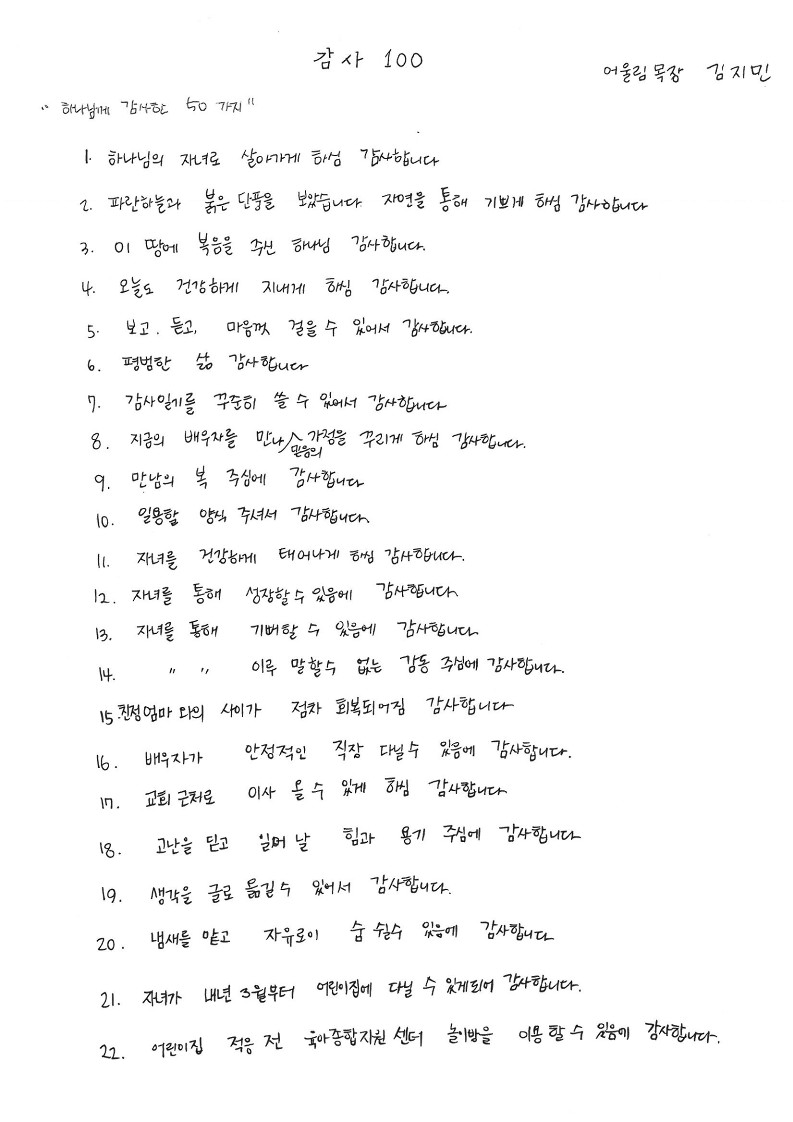 감사 100
어울림목장 김지민
"하나님께 감사한 50가지"
1. 하나님의 자녀로 살아가게 하심 감사합니다
2. 파란하늘과 붉은 단풍을 보았습니다 자연을 통해 기쁘게 하심 감사합니다
3. 이 땅에 복음을 주신 하나님 감사합니다.
4. 오늘도 건강하게 지내게 하심 감사합니다.
5. 보고. 듣고, 마음껏 걸을 수 있어서 감사합니다.
6. 평범한 삶 감사합니다
7. 감사일기를 꾸준히 쓸 수 있어서 감사합니다
8. 지금의 배우자를 만나 믿음의 가정을 꾸리게 하심 감사합니다.
9. 만남의 복 주심에 감사합니다
10. 일용할 양식 주셔서 감사합니다.
11. 자녀를 건강하게 태어나게 하심 감사합니다.
12. 자녀를 통해 성장할 수 있음에 감사합니다
13. 자녀를 통해 기뻐할 수 있음에 감사합니다
14. " " 이루 말할수 없는 감동 주심에 감사합니다.
15. 친정엄마 와의 사이가 점차 회복되어짐 감사합니다
16. 배우자가 안정적인 직장 다닐수 있음에 감사합니다.
17. 교회 근처로 이사 올 수 있게 하심 감사합니다
18. 고난을 딛고 일어 날 힘과 용기 주심에 감사합니다
19. 생각을 글로 옮길수 있어서 감사합니다.
20. 냄새를 맡고 자유로이 숨 쉴수 있음에 감사합니다
21. 자녀가 내년 3월부터 어린이집에 다닐 수 있게되어 감사합니다.
22. 어린이집 적응 전 육아종합지원 센터 놀이방을 이용 할 수 있음에 감사합니다.